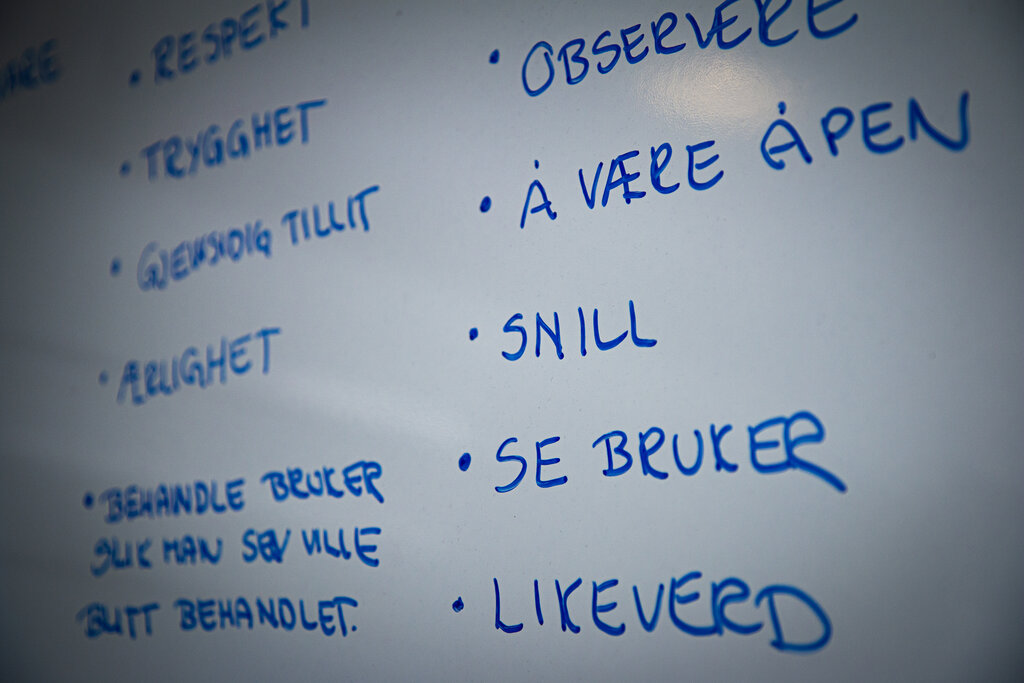 • RESPEKT
• TRYGGHET
• GJENSIDIG TILLIT
• ÆRLIGHET
• BEHANDLE BRUKER
SLIK MAN SELV VILLE
BLITT BEHANDLET.
• OBSERVERE
• Å VÆRE ÅPEN
• SNILL
• SE BRUKER
• LIKEVERD